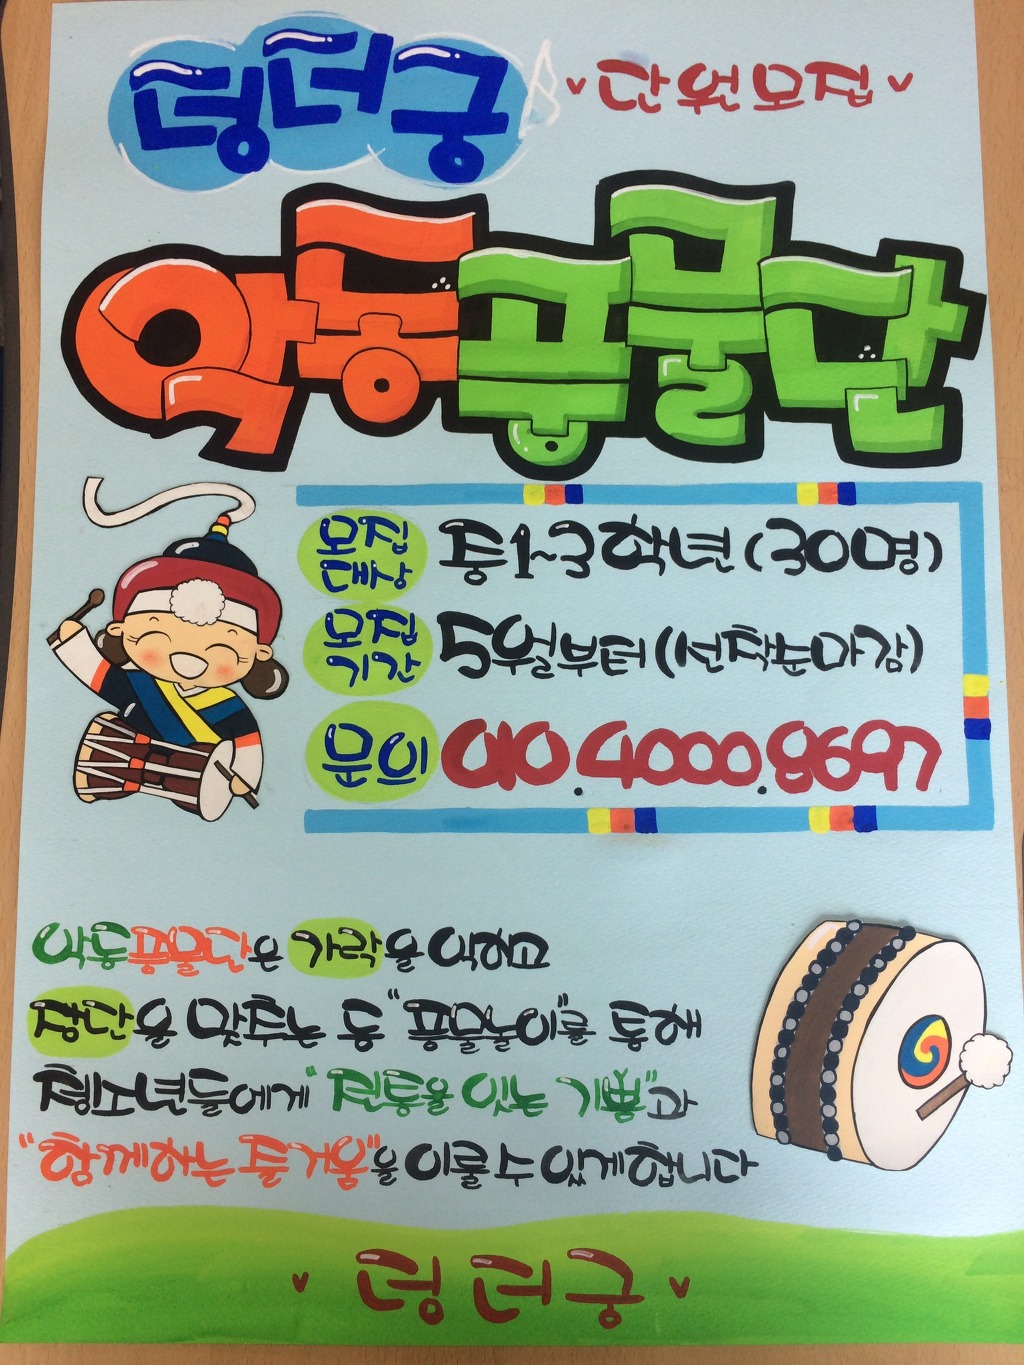 덩더궁 단원모집
악동풍물단
모집대상 중1~3학년 (30명)
모집기간 5월부터 (선착순마감)
문의 010.4000.8697
악동풍물단은 가락을 익히고
장단을 맞추는 등 "풍물놀이"를 통해
청소년들에게 "전통을 잇는 기쁨"과
"함께하는 즐거움"을 이룰 수 있게 합니다
덩더궁